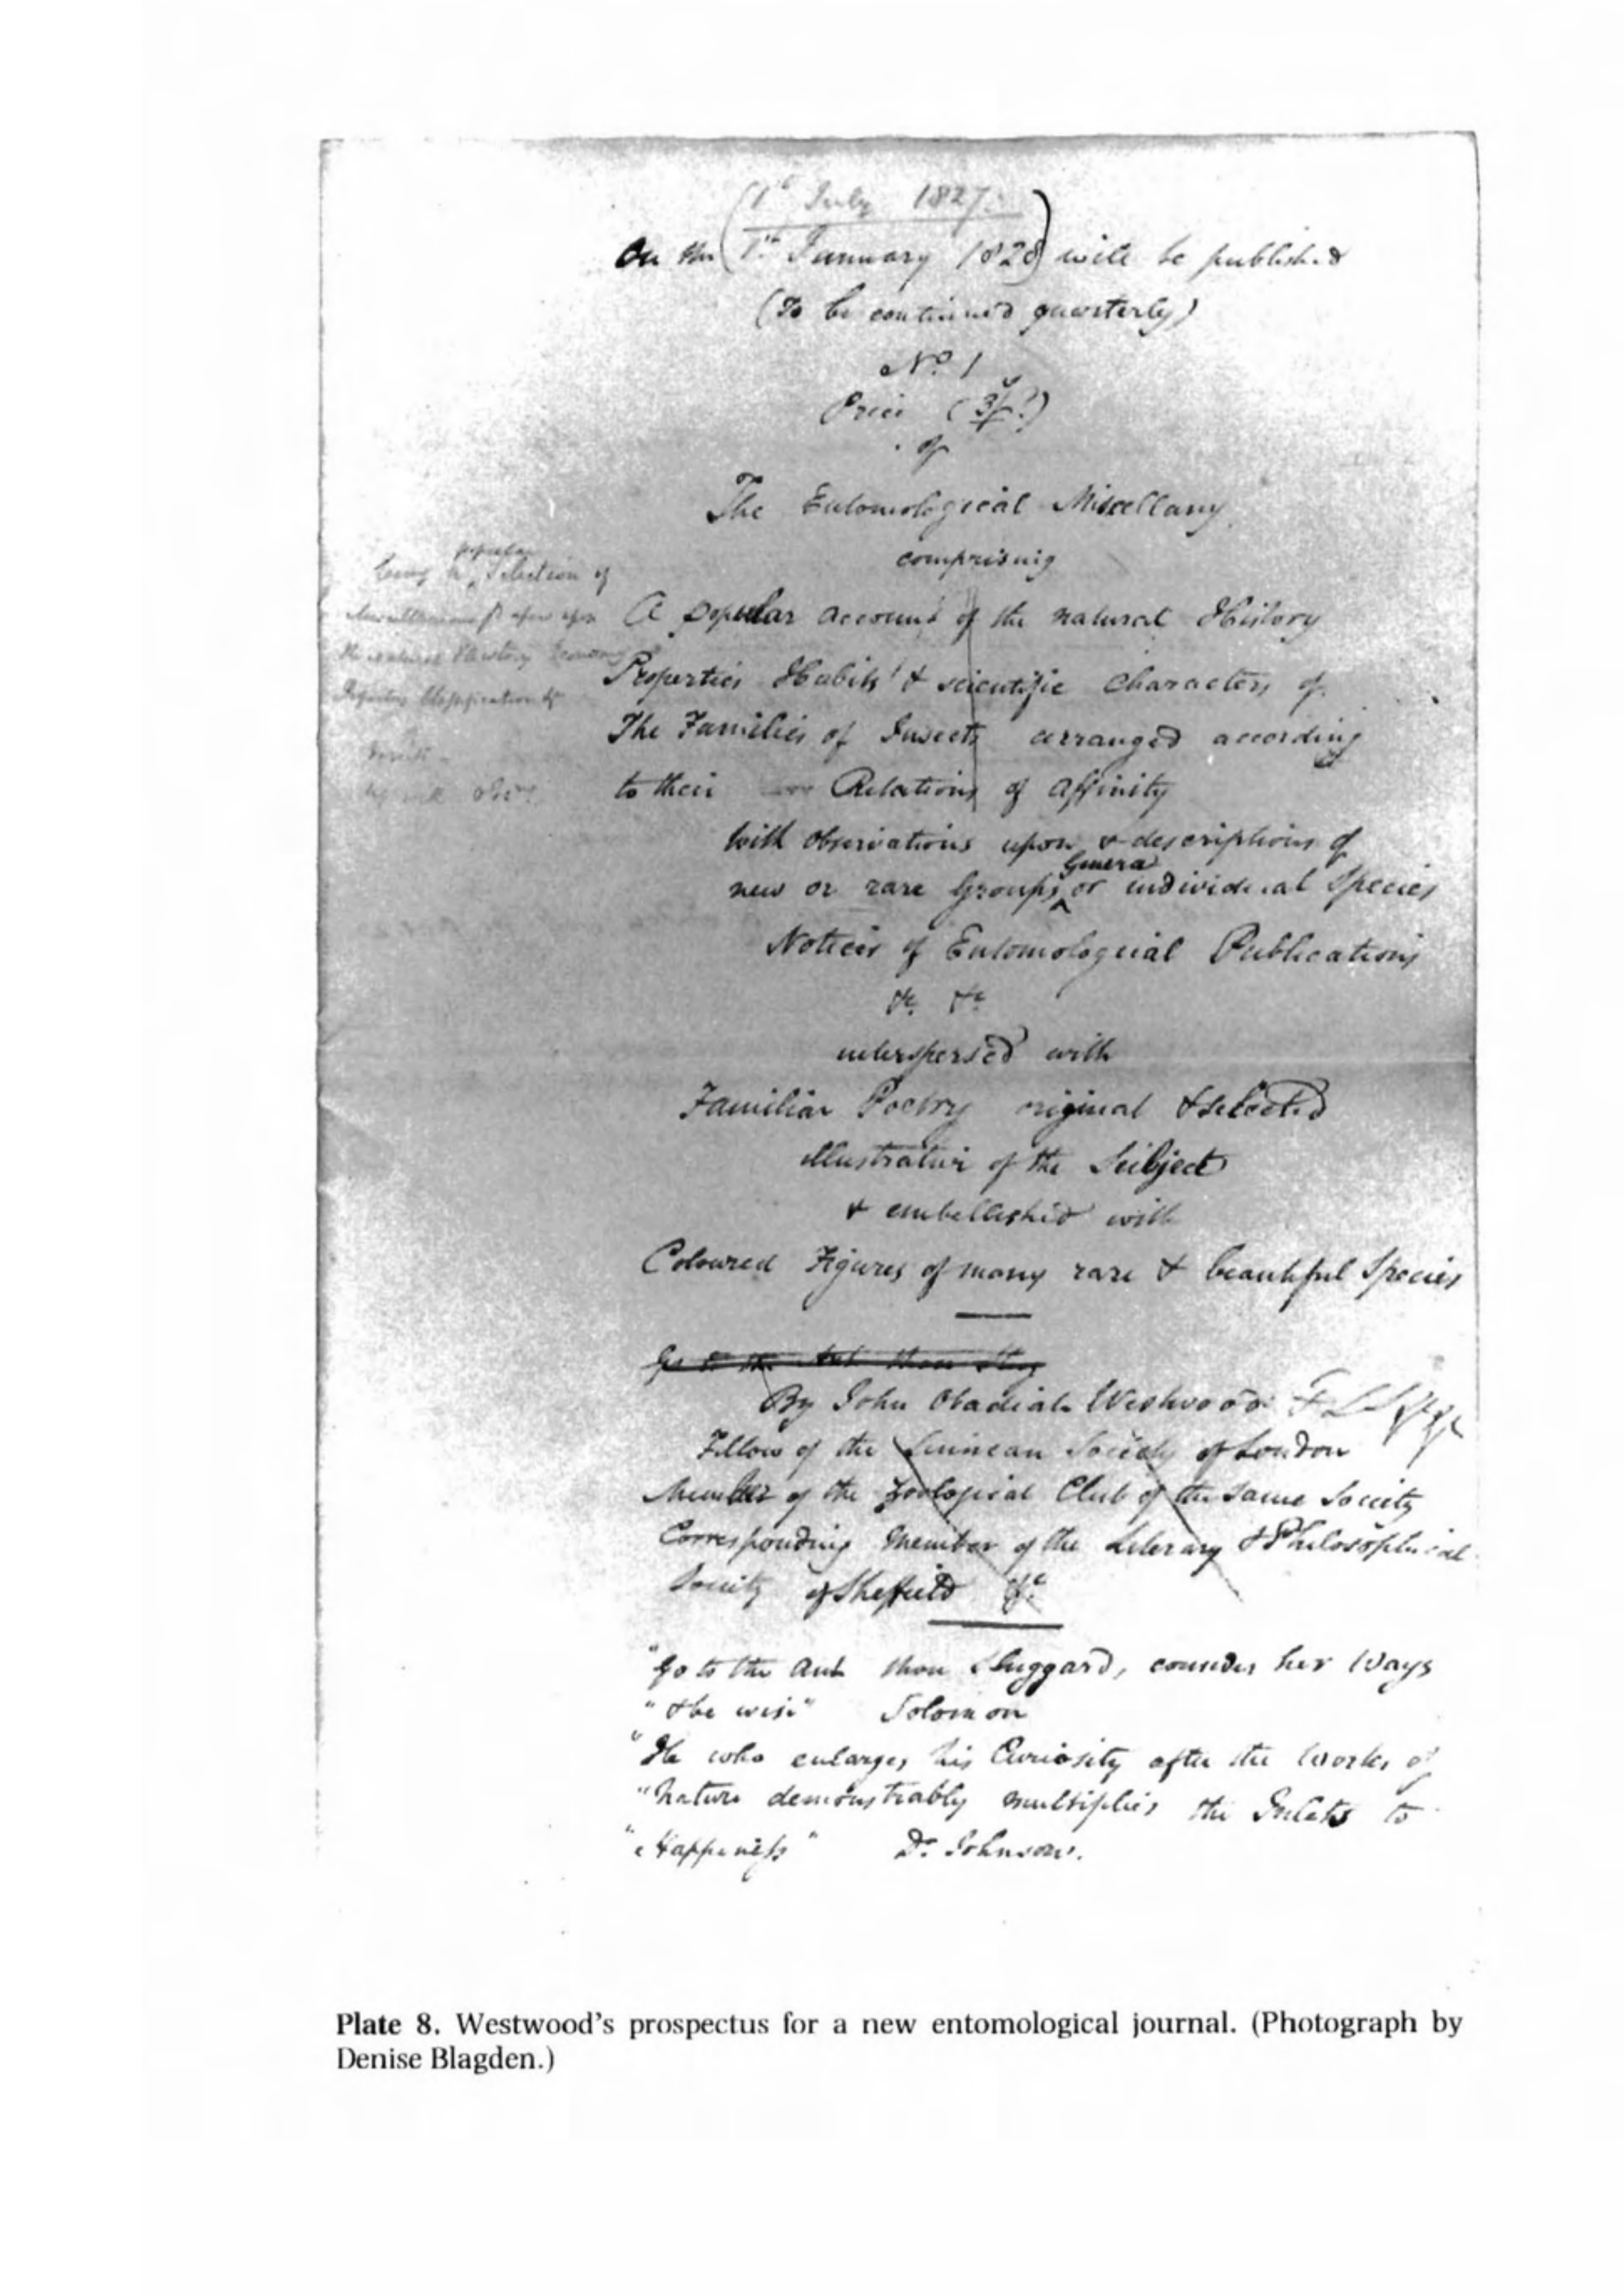 (1st July 1827.
On the 1st January 1828) will be published
(To be continued quarterly)
No. 1
Price (3/?)
of
The Entomological Miscellany
comprising
popular
being a selection of
A popular account of the natural History
Properties Habits & scientific Characters of
The Families of Insects arranged according
to their Relations of Affinity
With Observations upon & descriptions of
Genera
new or rare Groups, or individual Species
Notices of Entomological Publications
&c. &c
interspersed with
Familiar Poetry original & selected
illustrative of the Subject
& embellished with
Coloured Figures of many rare & beautiful Species
Go to the Ant thou Slug
By John Obadiah Westwood F L S
Fellow of the Linnean Society of London
Member of the Zoological Club of the same Society
Corresponding Member of the Literary & Philosophical
Society of Sheffield &c
"Go to the Ant thou Sluggard, consider her Ways
"& be wise" Solomon
"He who enlarges his Curiosity after the Works of
"Nature demonstrably multiplies the Inlets to
"Happiness" Dr. Johnson.
Plate 8. Westwood's prospectus for a new entomological journal. (Photograph by
Denise Blagden.)